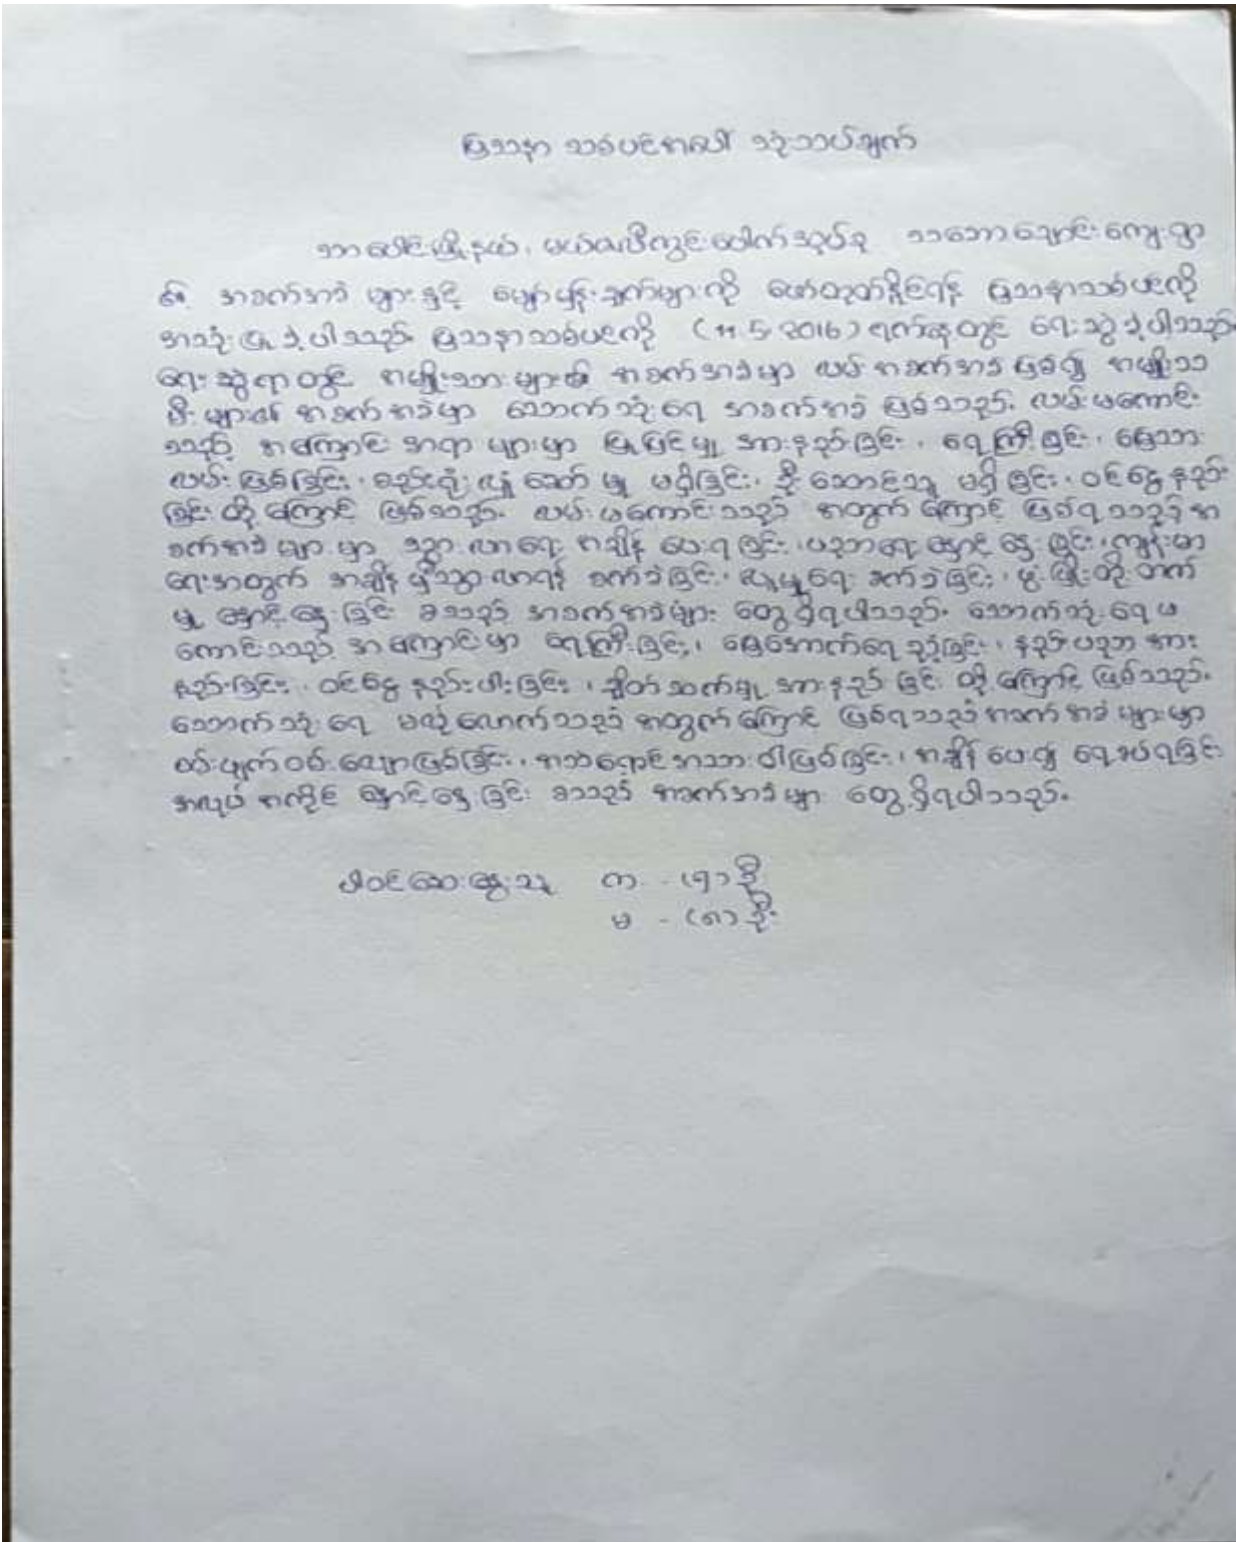 ပြဿနာ သစ်ပင်အပေါ် သုံးသပ်ချက်
ဘားပေါင်မြို့နယ်၊ မယ်ပလီကွင်းပေါက်အုပ်စု သဘောချောင်းကျေးရွာ
၏ အခက်အခဲ များနှင့် မျှော်မှန်းချက်များကို ဖော်ထုတ်နိုင်ရန် ပြဿနာသစ်ပင်ကို
အသုံးပြုခဲ့ပါသည်။ ပြဿနာသစ်ပင်ကို (11.5.2016) ရက်နေ့တွင် ရေးဆွဲခဲ့ပါသည်။
ရေးဆွဲရာတွင် အမျိုးသားများ၏ အခက်အခဲမှာ လမ်းအခက်အခဲ ဖြစ်၍ အမျိုးသ
မီးများ၏ အခက်အခဲမှာ သောက်သုံးရေ အခက်အခဲ ဖြစ်သည်။ လမ်းမကောင်း
သည့် အကြောင်းအရာ များမှာ ပြုပြင်မှု အားနည်းခြင်း၊ ရေကြီးခြင်း၊ မြေသား
လမ်းဖြစ်ခြင်း၊ စည်းရုံးလှုံ့ဆော်မှု မရှိခြင်း၊ ဦးဆောင်သူ မရှိခြင်း၊ ဝင်ငွေနည်း
ခြင်း တို့ကြောင့် ဖြစ်သည်။ လမ်းမကောင်းသည့် အတွက်ကြောင့် ဖြစ်ရသည့် အ
ခက်အခဲ များမှာ သွားလာရေး အချိန် ပေးရခြင်း၊ ပညာရေးနှောင့်နှေးခြင်း၊ ကျန်းမာ
ရေးအတွက် အချိန်မှီသွားလာရန် ခက်ခဲခြင်း၊ လူမှုရေး ခက်ခဲခြင်း၊ ဖွံ့ဖြိုးတိုးတက်
မှု နှောင့်နှေးခြင်း စသည့် အခက်အခဲများ တွေ့ရှိရပါသည်။ သောက်သုံးရေ မ
ကောင်းသည့် အကြောင်းမှာ ရေကြီးခြင်း၊ မြေအောက်ရေညံ့ခြင်း၊ နည်းပညာ အား
နည်းခြင်း၊ ဝင်ငွေနည်းပါးခြင်း၊ ချိတ်ဆက်မှု အားနည်းခြင်း တို့ကြောင့် ဖြစ်သည်။
သောက်သုံးရေ မလုံလောက်သည့် အတွက်ကြောင့် ဖြစ်ရသည့် အခက်အခဲများမှာ
ဝမ်းပျက်ဝမ်းလျောဖြစ်ခြင်း၊ အသဲရောင်အသားဝါဖြစ်ခြင်း၊ အချိန်ပေး၍ ရေခပ်ရခြင်း
အလုပ်အကိုင် နှောင့်နှေးခြင်း စသည့် အခက်အခဲများ တွေ့ရှိရပါသည်။
ပါဝင်ဆွေးနွေးသူ ကျား - (၅) ဦး
မ - (၈) ဦး